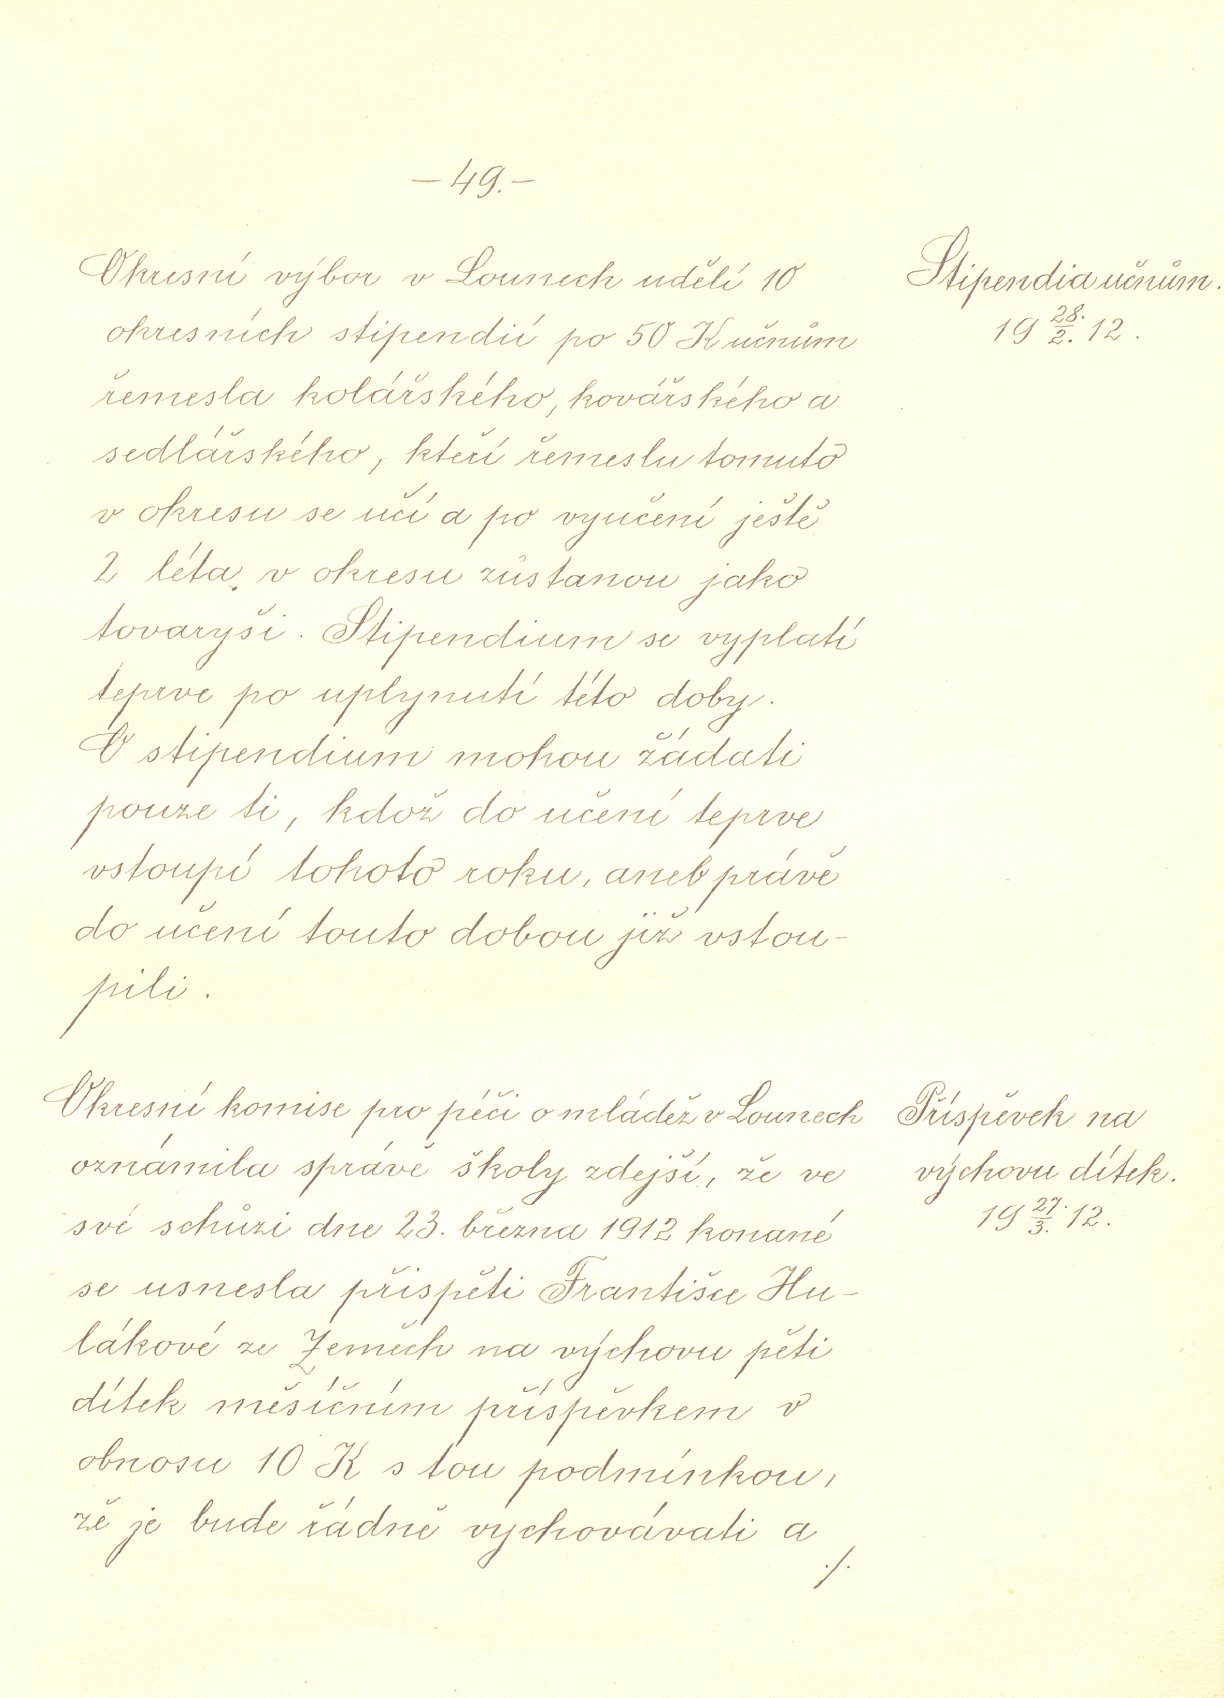 — 49. —
Okresní výbor v Lounech udělí 10
okresních stipendií po 50 K učňům
řemesla kolářského, kovářského a
sedlářského, kteří řemeslu tomuto
v okresu se učí a po vyučení ještě
2 léta v okresu zůstanou jako
tovaryši. Stipendium se vyplatí
teprve po uplynutí této doby.
O stipendium mohou žádati
pouze ti, kdož do učení teprve
vstoupí tohoto roku, aneb právě
do učení touto dobou již vstou-
pili.
Stipendia učňům.
19 28./2. 12.
Okresní komise pro péči o mládež v Lounech
oznámila správě školy zdejší, že ve
své schůzi dne 23. března 1912 konané
se usnesla přispěti Františce Hu-
lákové ze Zeměch na výchovu pěti
dítek měsíčním příspěvkem v
obnosu 10 K s tou podmínkou,
že je bude řádně vychovávati a
./.
Příspěvek na
výchovu dítek.
19 27./3. 12.